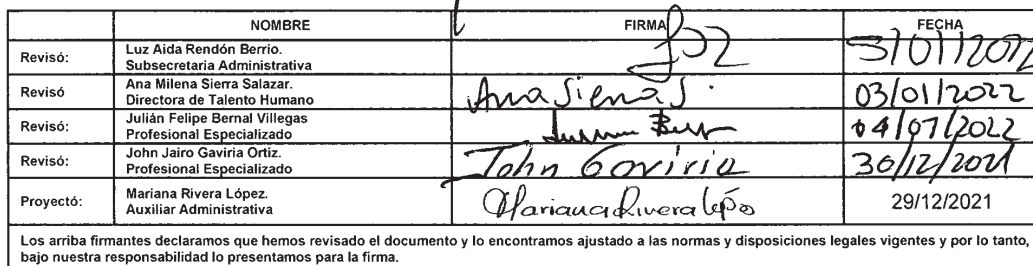 NOMBRE FIRMA FECHA
Revisó: Luz Aida Rendón Berrio.
Subsecretaria Administrativa
Revisó Ana Milena Sierra Salazar.
Directora de Talento Humano
Ana Sierra S. 03/01/2022
Revisó: Julián Felipe Bernal Villegas
Profesional Especializado
Revisó: John Jairo Gaviria Ortiz.
Profesional Especializado
John Gaviria 30/12/2021
Proyectó: Mariana Rivera López.
Auxiliar Administrativa
Mariana Rivera López 29/12/2021
Los arriba firmantes declaramos que hemos revisado el documento y lo encontramos ajustado a las normas y disposiciones legales vigentes y por lo tanto,
bajo nuestra responsabilidad lo presentamos para la firma.